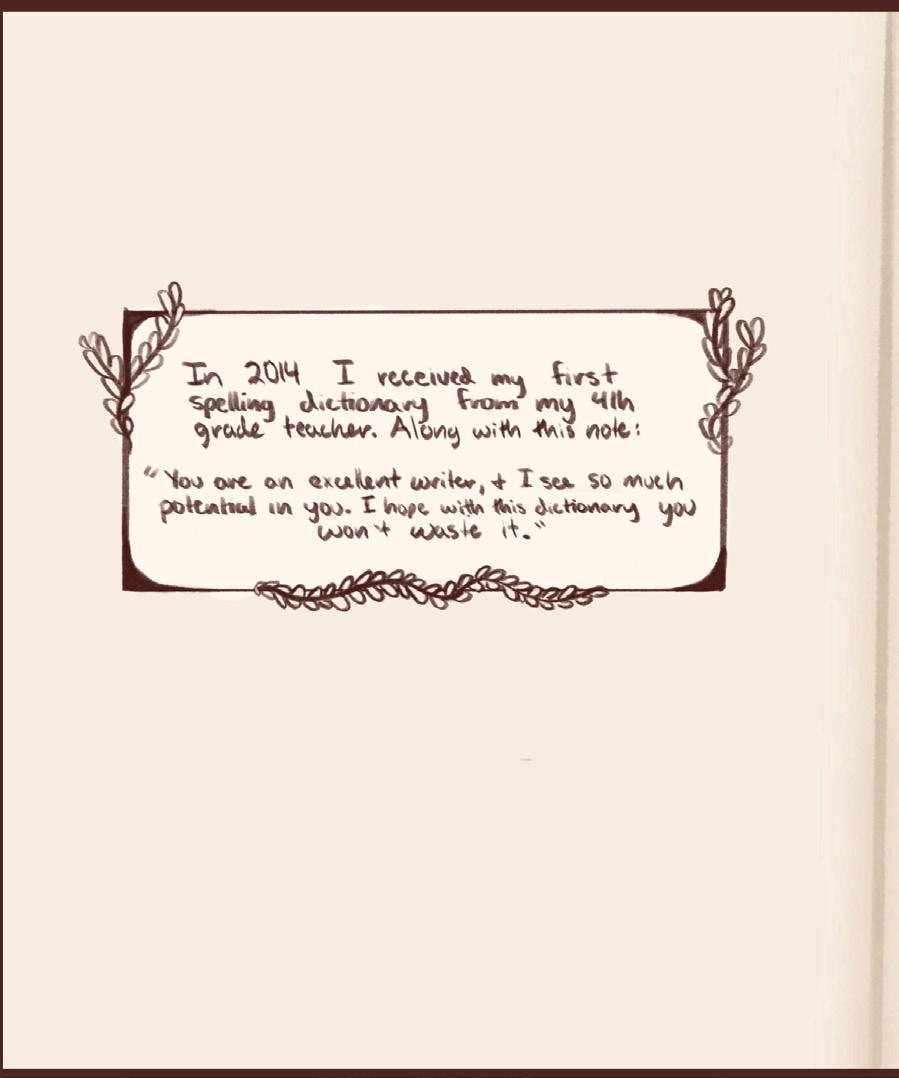 In 2014 I received my first
spelling dictionary from my 4th
grade teacher. Along with this note:
"You are an excellent writer, + I see so much
potential in you. I hope with this dictionary you
won't waste it."